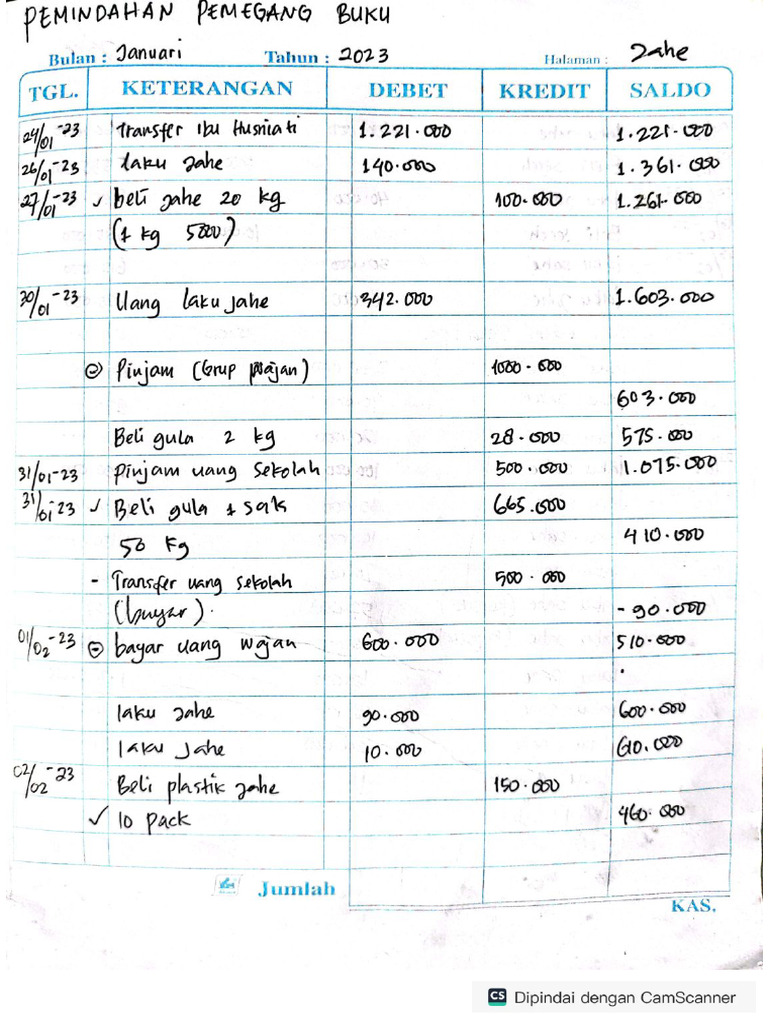 PEMINDAHAN PEMEGANG BUKU
Bulan : Januari Tahun : 2023 Halaman : Jahe
TGL. KETERANGAN DEBET KREDIT SALDO
24/01-23 Transfer Ibu Husniati 1.221.000 1.221.000
26/01-23 laku Jahe 140.000 1.361.000
27/01-23 ✓ beli jahe 20 kg 100.000 1.261.000
(1 kg 5000)
30/01-23 Uang laku jahe 342.000 1.603.000
⊖ Pinjam (Grup wajan) 1000.000
603.000
Beli gula 2 kg 28.000 575.000
31/01-23 Pinjam uang sekolah 500.000 1.075.000
31/01-23 ✓ Beli gula 1 sak 665.000
50 kg 410.000
- Transfer uang sekolah 500.000
(bayar). -90.000
01/02-23 ⊖ bayar uang wajan 600.000 510.000
laku Jahe 90.000 600.000
laku Jahe 10.000 610.000
02/02-23 Beli plastik jahe 150.000
✓ 10 pack 460.000
Jumlah
KAS.
CS Dipindai dengan CamScanner